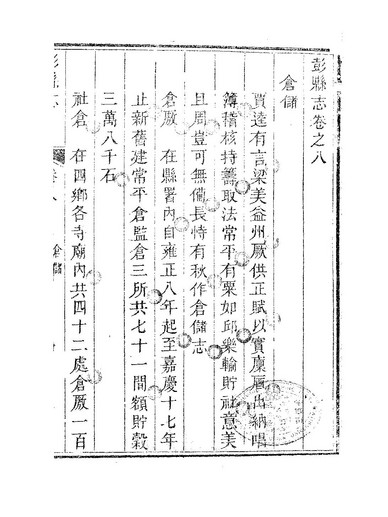 彭縣志卷之八
倉儲
賈逵有言梁美益州厥供正賦以實廩庾出納唱
籌稽核持籌取法常平有粟如邱樂輸貯社意美
且周豈可無備長恃有秋作倉儲志
倉厫 在縣署內自雍正八年起至嘉慶十七年
止新舊建常平倉監倉三所共七十一間額貯穀
三萬八千石
社倉 在四鄉各寺廟內共四十二處倉厫一百
倉儲